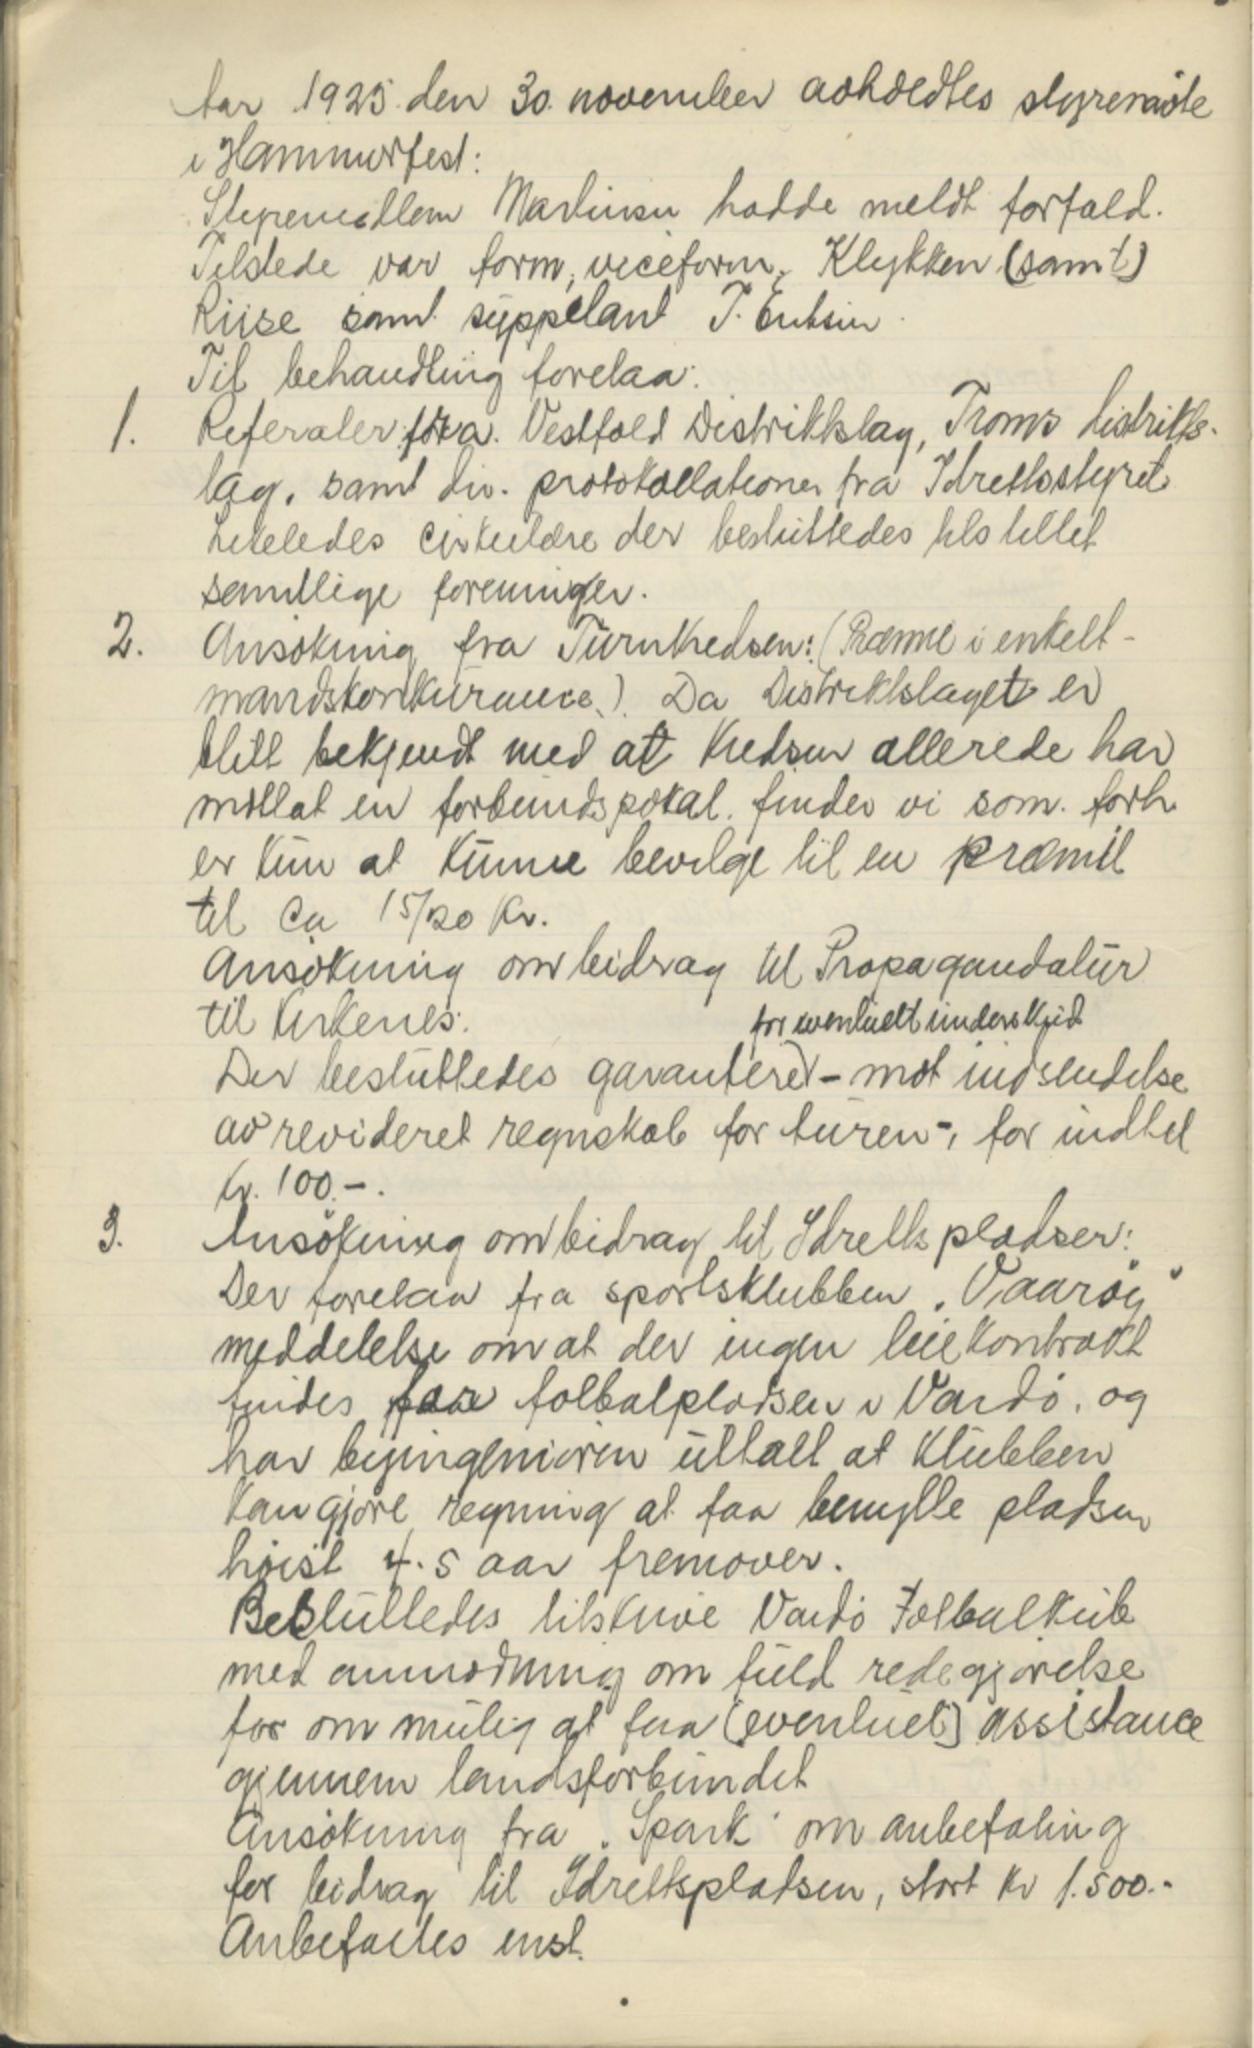 Aar 1925 den 30. november avholdtes styremöte
i Hammerfest:
Styremedlem Martinsen hadde meldt forfald.
Tilstede var form, viceform, Klykken (samt)
Riise samt suppelant T. Eriksen.
Til behandling forelaa:
1. Referater fra Vestfold Distriktslag, Troms distrikts-
lag, samt div. protokollationer fra Idrettsstyret
Likeledes cirkulære der besluttedes tilstillet
samtlige foreninger.
2. Ansökning fra Turnkredsen: (Præmie i enkelt-
mandskonkurance.) Da Distriktslaget er
blitt bekjendt med at kredsen allerede har
mottat en forbundspokal. finder vi som forh.
er kun at kunne bevilge til en præmie
til ca 15/20 kr.
Ansökning om bidrag til Propagandatur
til Kirkenes:
for eventuelt underskud
Der besluttedes garanteret - mot indsendelse
av revideret regnskab for turen -, for indtil
kr. 100.-.
3. Ansökning om bidrag til Idrettspladser:
Der forelaa fra sportsklubben "Vaarög"
meddelelse om at der ingen leiekontrakt
findes for fotbalpladsen i Vardö, og
har byingeniören uttalt at klubben
kan gjöre regning at faa benytte pladsen
höist 4.5 aar fremover.
Besluttedes tilskrive Vardö Fotbalklub
med anmodning om fuld redegjörelse
for om mulig at faa (eventuel) assistance
gjennem landsforbundet
Ansökning fra "Spark" om anbefaling
for bidrag til Idrettspladsen, stort kr 1.500.-
Anbefaltes enst.